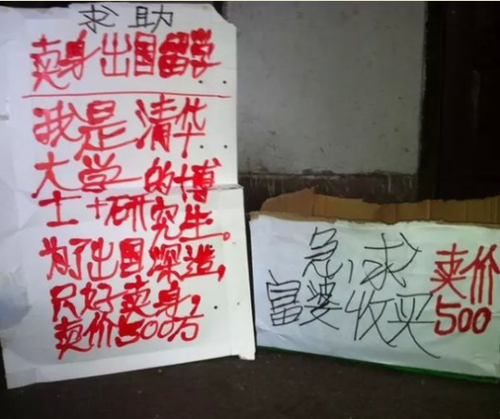 求助
卖身出国留学
我是清华
大学的博
士+研究生。
为了出国深造,
只好卖身,
卖价500万
急求
富婆收买
卖价
500